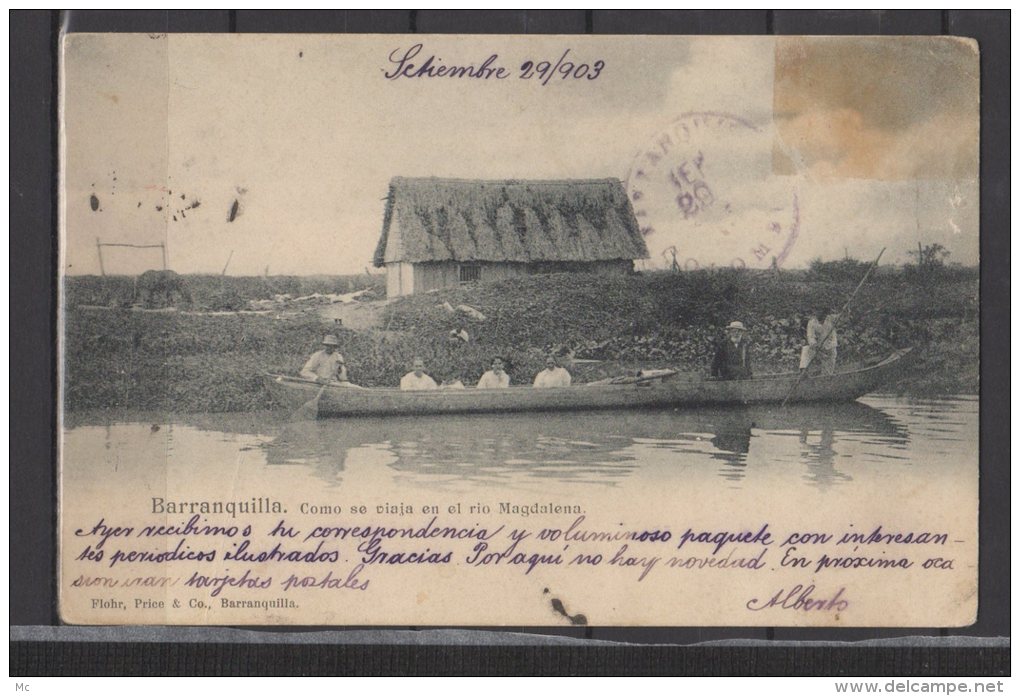 Setiembre 29/903
SEP
29
Barranquilla. Como se viaja en el rio Magdalena.
Ayer recibimos tu correspondencia y voluminoso paquete con interesan-
tes periodicos ilustrados. Gracias Por aquí no hay novedad. En próxima oca
sion iran tarjetas postales
Alberto
Flohr, Price & Co., Barranquilla.
Mc
www.delcampe.net